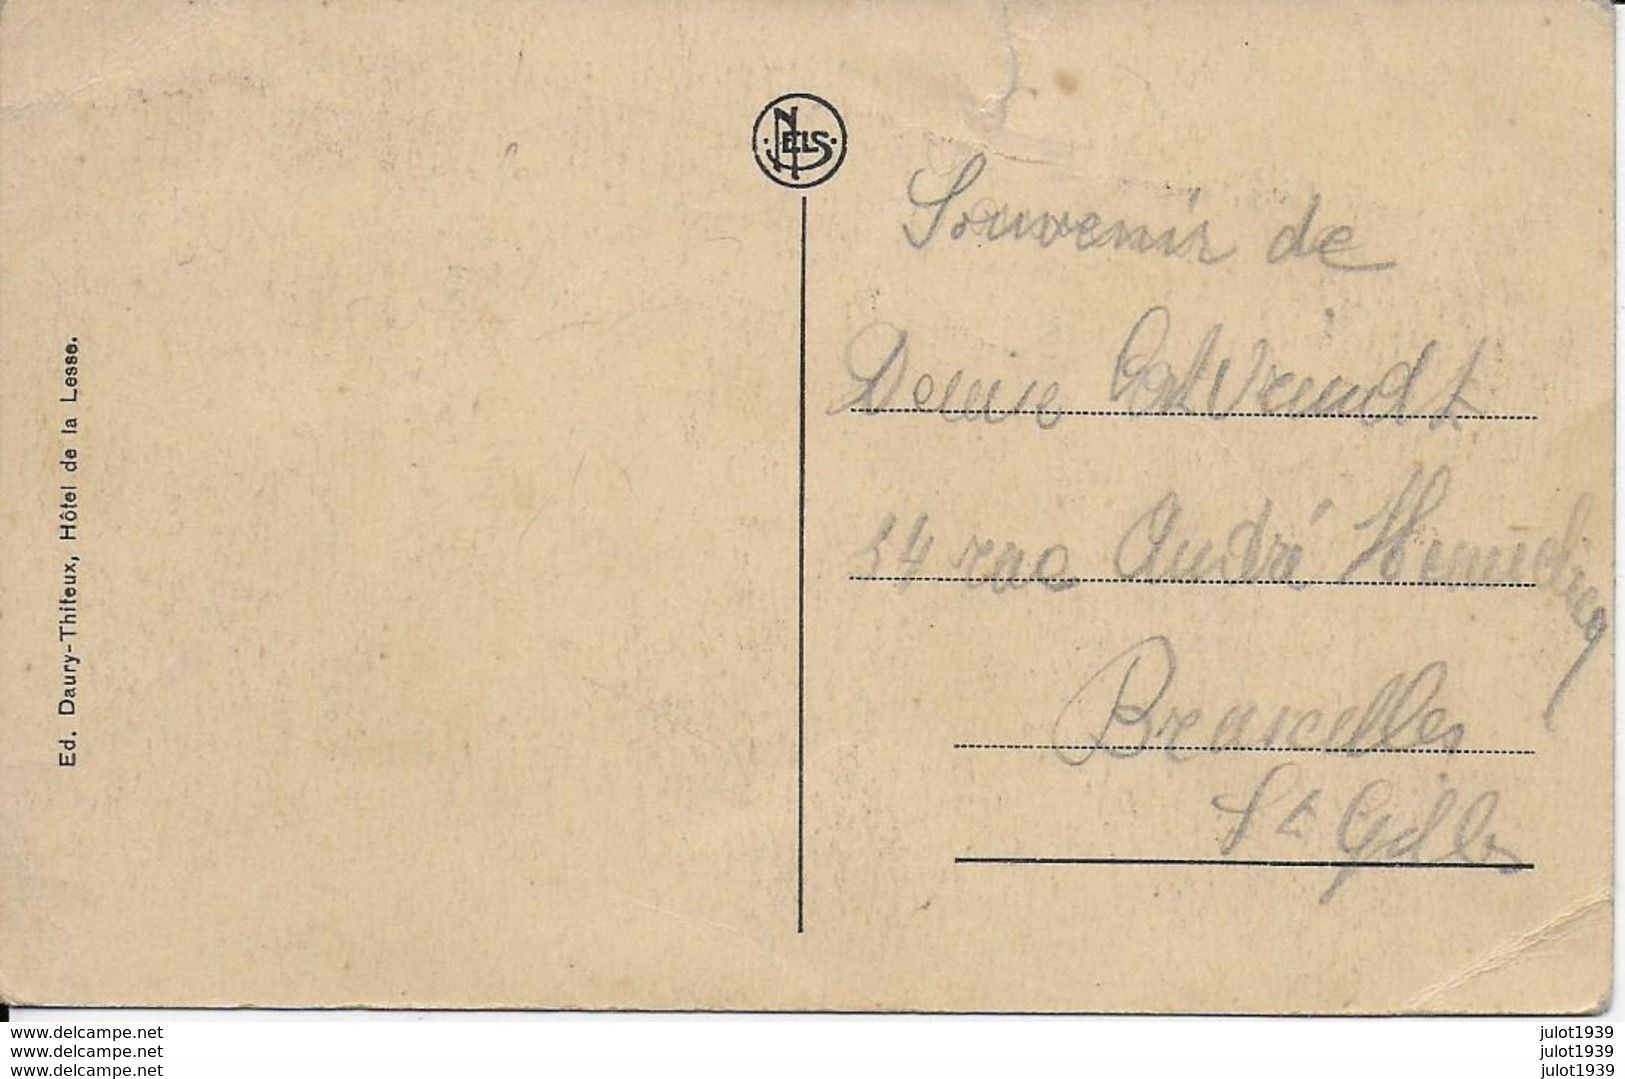 Ed. Daury-Thiteux, Hôtel de la Lesse.
NELS
Souvenir de
14 rue André
Bruxelles
St Gilles
www.delcampe.net
www.delcampe.net
www.delcampe.net
julot1939
julot1939
julot1939